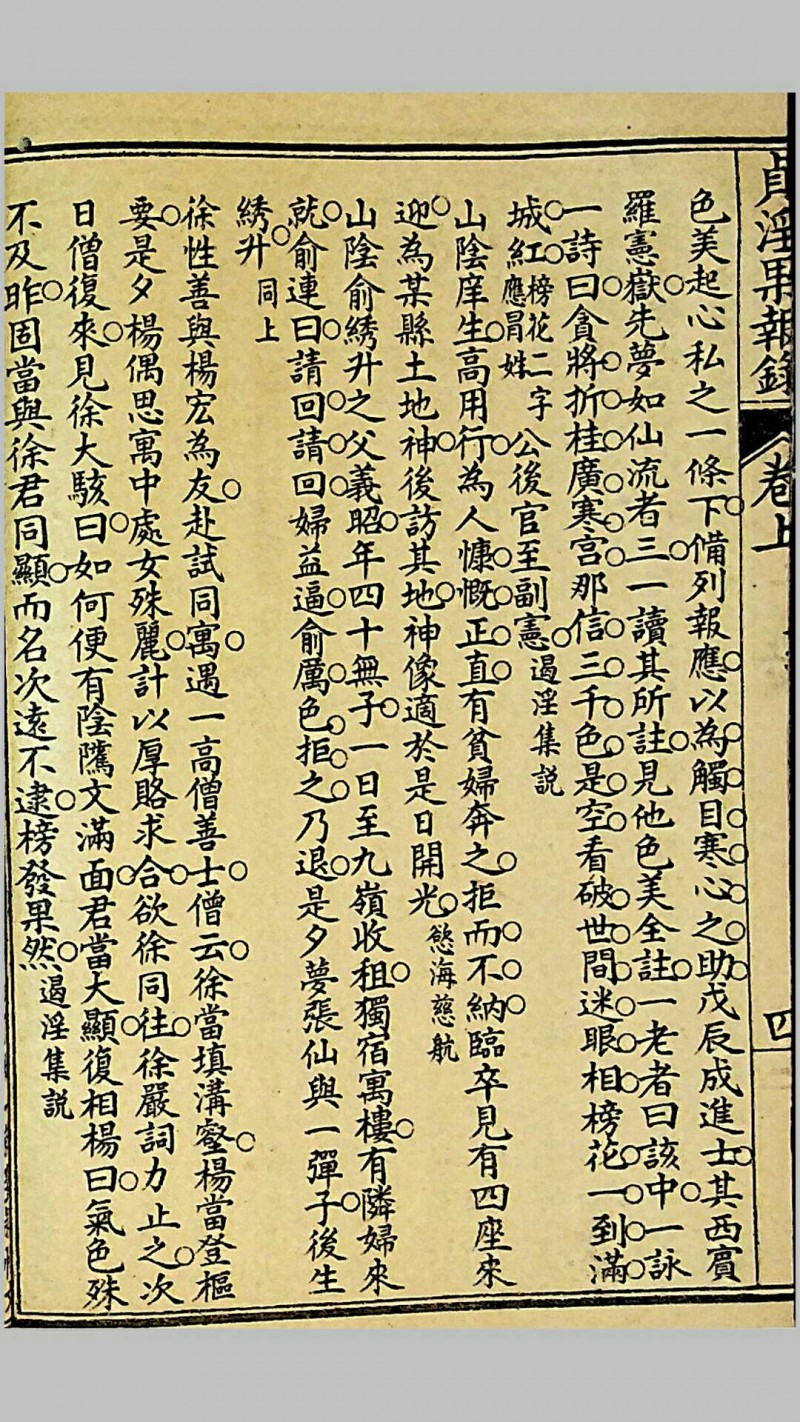 貞淫果報錄 卷上 四
色美起心私之一條下備列報應以為觸目寒心之助戊辰成進士其西賓
羅憲嶽先夢如仙流者三一讀其所註見他色美全註一老者曰該中一詠
一詩曰貪將折桂廣寒宮那信三千色是空看破世間迷眼相榜花一到滿
城紅榜花二字應冒姓公後官至副憲遏淫集説
山陰庠生高用行為人慷慨正直有貧婦奔之拒而不納臨卒見有四座來
迎為某縣土地神後訪其地神像適於是日開光慾海慈航
山陰俞綉升之父義昭年四十無子一日至九嶺收租獨宿寓樓有隣婦來
就俞連曰請回請回婦益逼俞厲色拒之乃退是夕夢張仙與一彈子後生
綉升同上
徐性善與楊宏為友赴試同寓遇一高僧善士僧云徐當填溝壑楊當登樞
要是夕楊偶思寓中處女殊麗計以厚賂求合欲徐同往徐嚴詞力止之次
日僧復來見徐大駭曰如何便有陰騭文滿面君當大顯復相楊曰氣色殊
不及昨固當與徐君同顯而名次遠不逮榜發果然遏淫集説